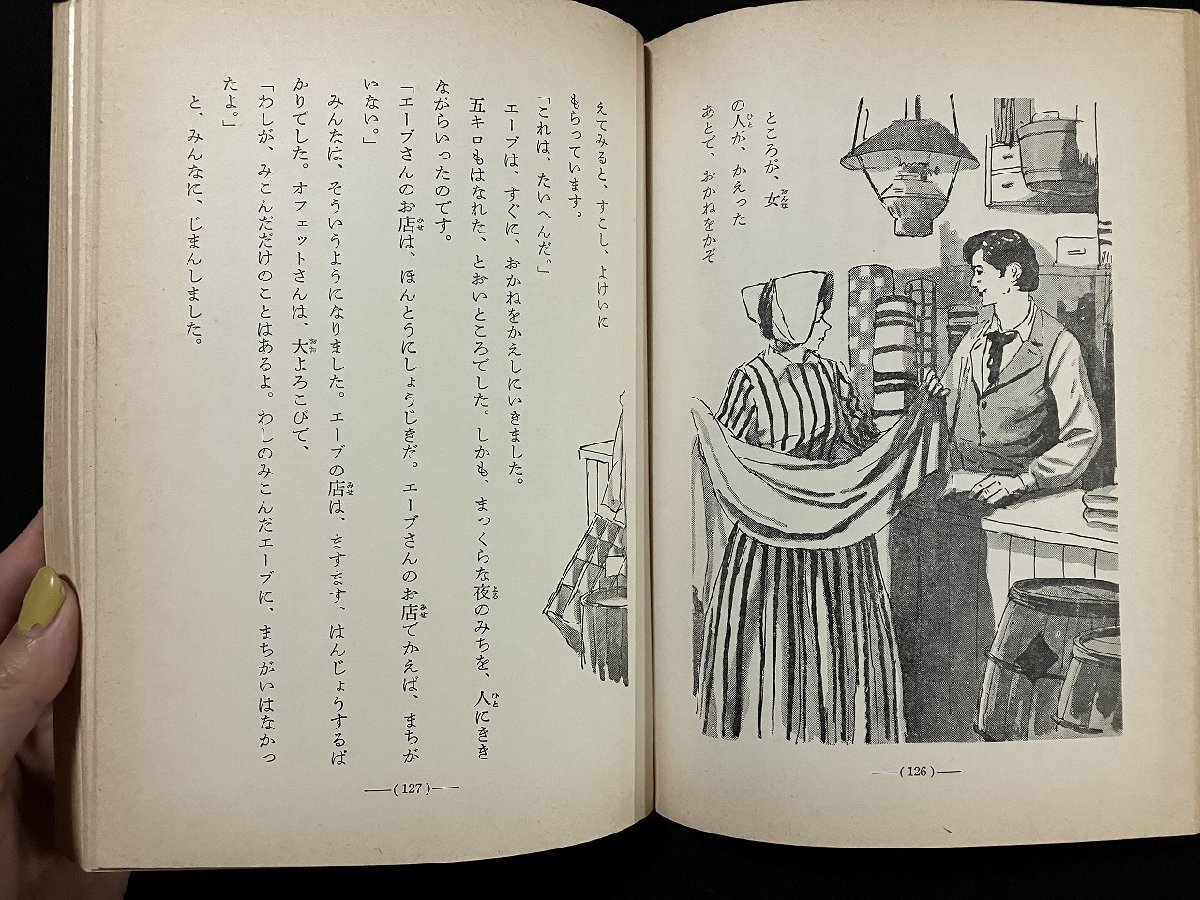 ところが、女
の人が、かえった
あとで、おかねをかぞ
(126)
えてみると、すこし、よけいに
もらっています。
「これは、たいへんだ。」
エーブは、すぐに、おかねをかえしにいきました。
五キロもはなれた、とおいところでした。しかも、まっくらな夜のみちを、人にきき
ながらいったのです。
「エーブさんのお店は、ほんとうにしょうじきだ。エーブさんのお店でかえば、まちが
いない。」
みんなは、そういうようになりました。エーブの店は、ますます、はんじょうするば
かりでした。オフェットさんは、大よろこびで、
「わしが、みこんだだけのことはあるよ。わしのみこんだエーブに、まちがいはなかっ
たよ。」
と、みんなに、じまんしました。
(127)